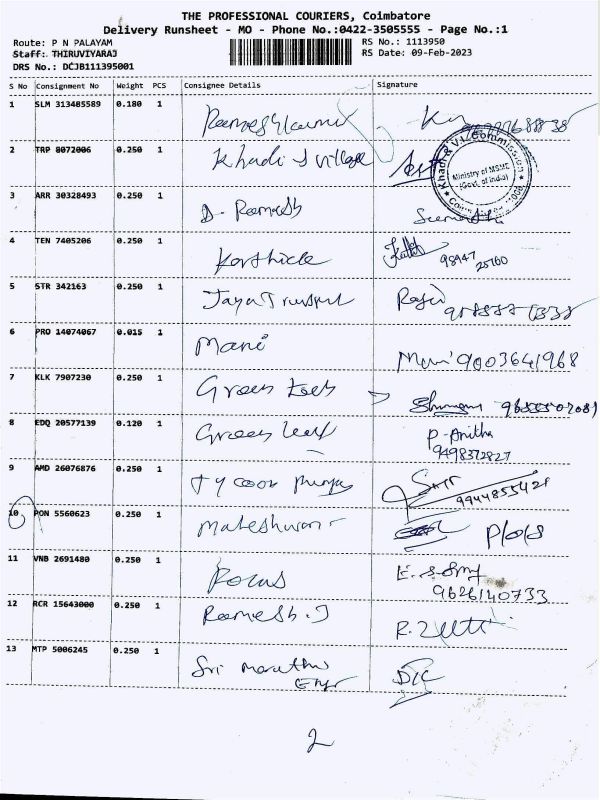 THE PROFESSIONAL COURIERS, Coimbatore
Delivery Runsheet - MO - Phone No.:0422-3505555 - Page No.:1
Route: P N PALAYAM RS No.: 1113950
Staff: THIRUVIYARAJ RS Date: 09-Feb-2023
DRS No.: DCJB111395001
S No Consignment No Weight PCS Consignee Details Signature
1 SLM 313485589 0.180 1
2 TRP 8072006 0.250 1 Khadi & village
Khadi & V.I. Commission
Ministry of MSME
(Govt. of India)
3 ARR 30328493 0.250 1 D. Ramesh
4 TEN 7405206 0.250 1 Karthick 98947
25760
5 STR 342163 0.250 1 Jaya Transport
6 PRO 14074067 0.015 1 Mani Mani 9003641968
7 KLK 7907230 0.250 1 Green
8 EDQ 20577139 0.120 1 Green leaf P-Anitha
9498372827
9 AMD 26076876 0.250 1 Tycoon 9944855421
10 PON 5560623 0.250 1 Maheshwari
11 VNB 2691480 0.250 1 9626140733
12 RCR 15643000 0.250 1 Ramesh.J
13 MTP 5006245 0.250 1 Sri Maruthi
2